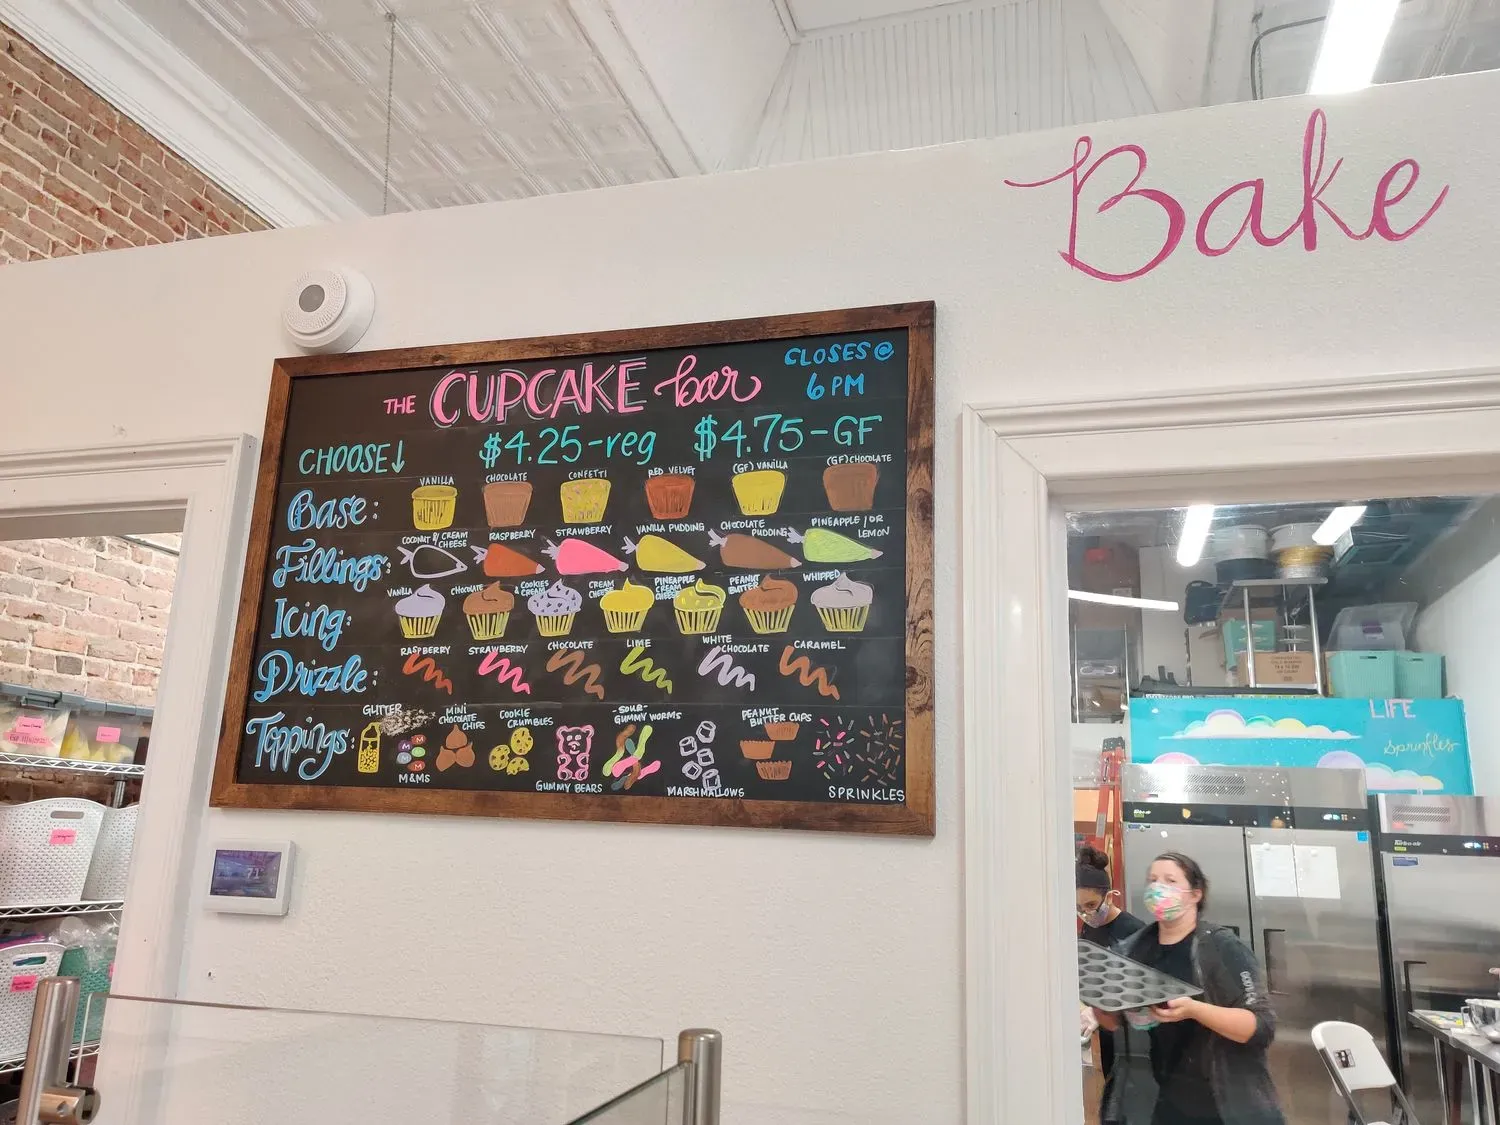 Bake
THE CUPCAKE bar
CLOSES @
6 PM
CHOOSE↓
$4.25-reg $4.75-GF
Base:
VANILLA
CHOCOLATE
CONFETTI
RED VELVET
(GF) VANILLA
(GF) CHOCOLATE
Fillings:
COCONUT
CREAM
CHEESE
RASPBERRY
STRAWBERRY
VANILLA PUDDING
CHOCOLATE
PUDDING
PINEAPPLE / OR
LEMON
Icing:
VANILLA
CHOCOLATE
COOKIES
& CREAM
CREAM
CHEESE
PINEAPPLE
CREAM
CHEESE
PEANUT
BUTTER
WHIPPED
Drizzle:
RASPBERRY
STRAWBERRY
CHOCOLATE
LIME
WHITE
CHOCOLATE
CARAMEL
Toppings:
GLITTER
M
M
M
M&MS
MINI
CHOCOLATE
CHIPS
COOKIE
CRUMBLES
GUMMY BEARS
-SOUR-
GUMMY WORMS
MARSHMALLOWS
PEANUT
BUTTER CUPS
SPRINKLES
71
LIFE
Sprinkles
Turbo air